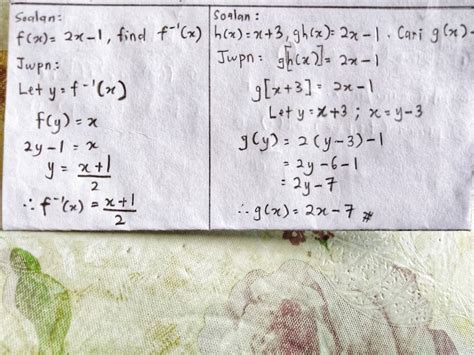 Soalan:
f(x) = 2x-1, find f⁻¹(x)
Jwpn:
Let y = f⁻¹(x)
f(y) = x
2y-1 = x
y = x+1/2
∴ f⁻¹(x) = x+1/2
Soalan:
h(x) = x+3, gh(x) = 2x-1. Cari g(x).
Jwpn: g[h(x)] = 2x-1
g[x+3] = 2x-1
Let y = x+3 ; x = y-3
g(y) = 2(y-3)-1
= 2y-6-1
= 2y-7
∴ g(x) = 2x-7 #